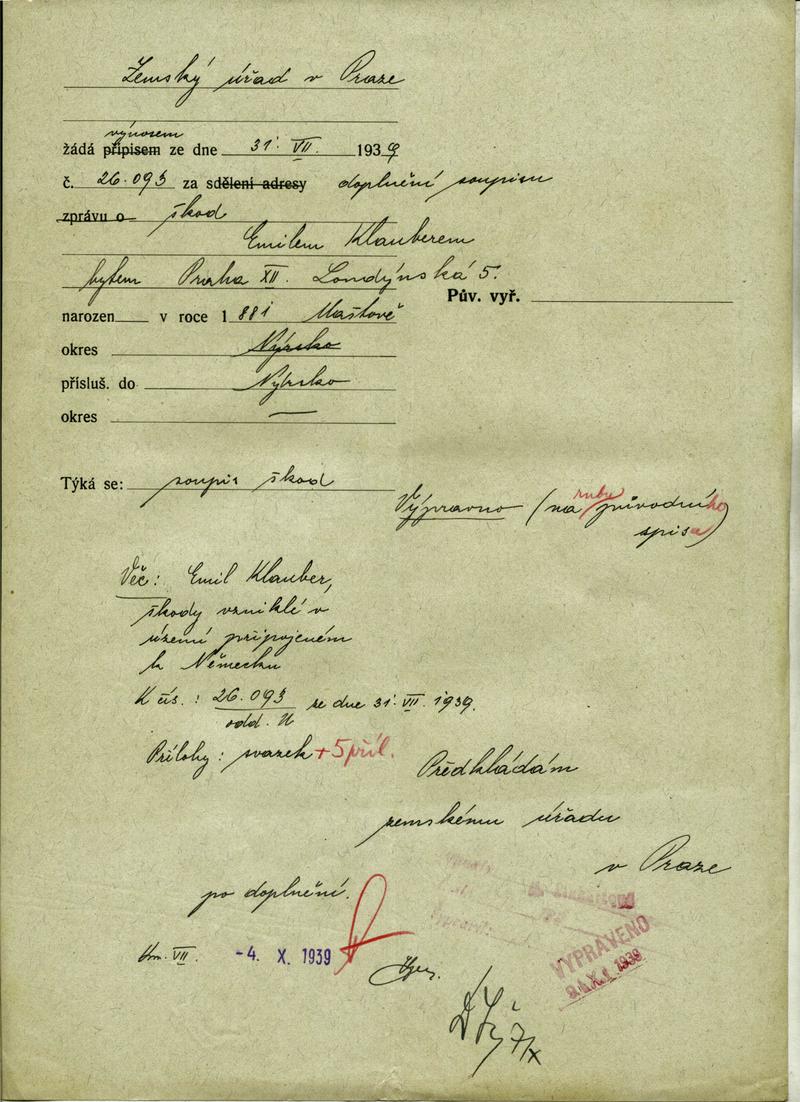 Zemský úřad v Praze
výnosem
žádá přípisem ze dne 31. VII. 1939
č. 26.093 za sdělení adresy doplnění soupisu
zprávu o škod
Emilem Klauberem
bytem Praha XII. Londýnská 5.
Pův. vyř.
narozen v roce 1881 Maštově
okres Nýrsko
přísluš. do Nýrsko
okres —
Týká se: soupis škod
Výpravno (na rubu průvodního
spisu)
Věc: Emil Klauber,
škody vzniklé v
území připojeném
k Německu
K čís.: 26.093 ze dne 31. VII. 1939.
odd.
Přílohy: svazek + 5 příl.
Předkládám
zemskému úřadu
v Praze
po doplnění.
VII. -4. X. 1939
VYPRAVENO
1939
7/X